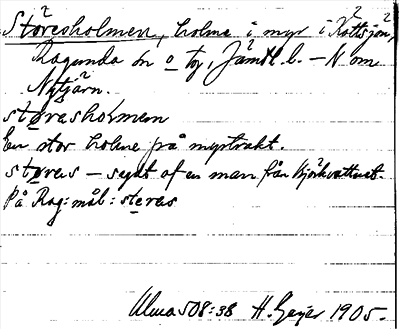 Störesholmen, holme i myr i Kottsjön,
Ragunda sn o tg, Jämtl. l. – N om
Nytjärn.
støresholmen
En stor holme på myrtrakt.
støres – sagt af en man från Björkvattnet.
På Rag: mål: steres
Ulma 508:38 H. Geijer 1905.